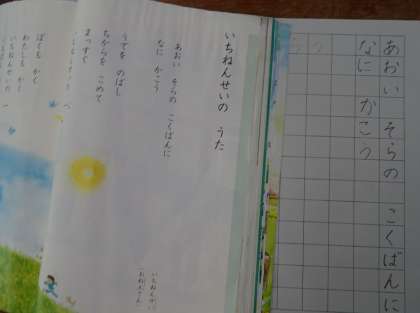 あおい そらの こくばんに
なに かこう
いちねんせいの うた
あおい そらの こくばんに
なに かこう
うでを のばし
ちからを こめて
まっすぐ
ぼくも かく
わたしも かく
いちねんせいの 一